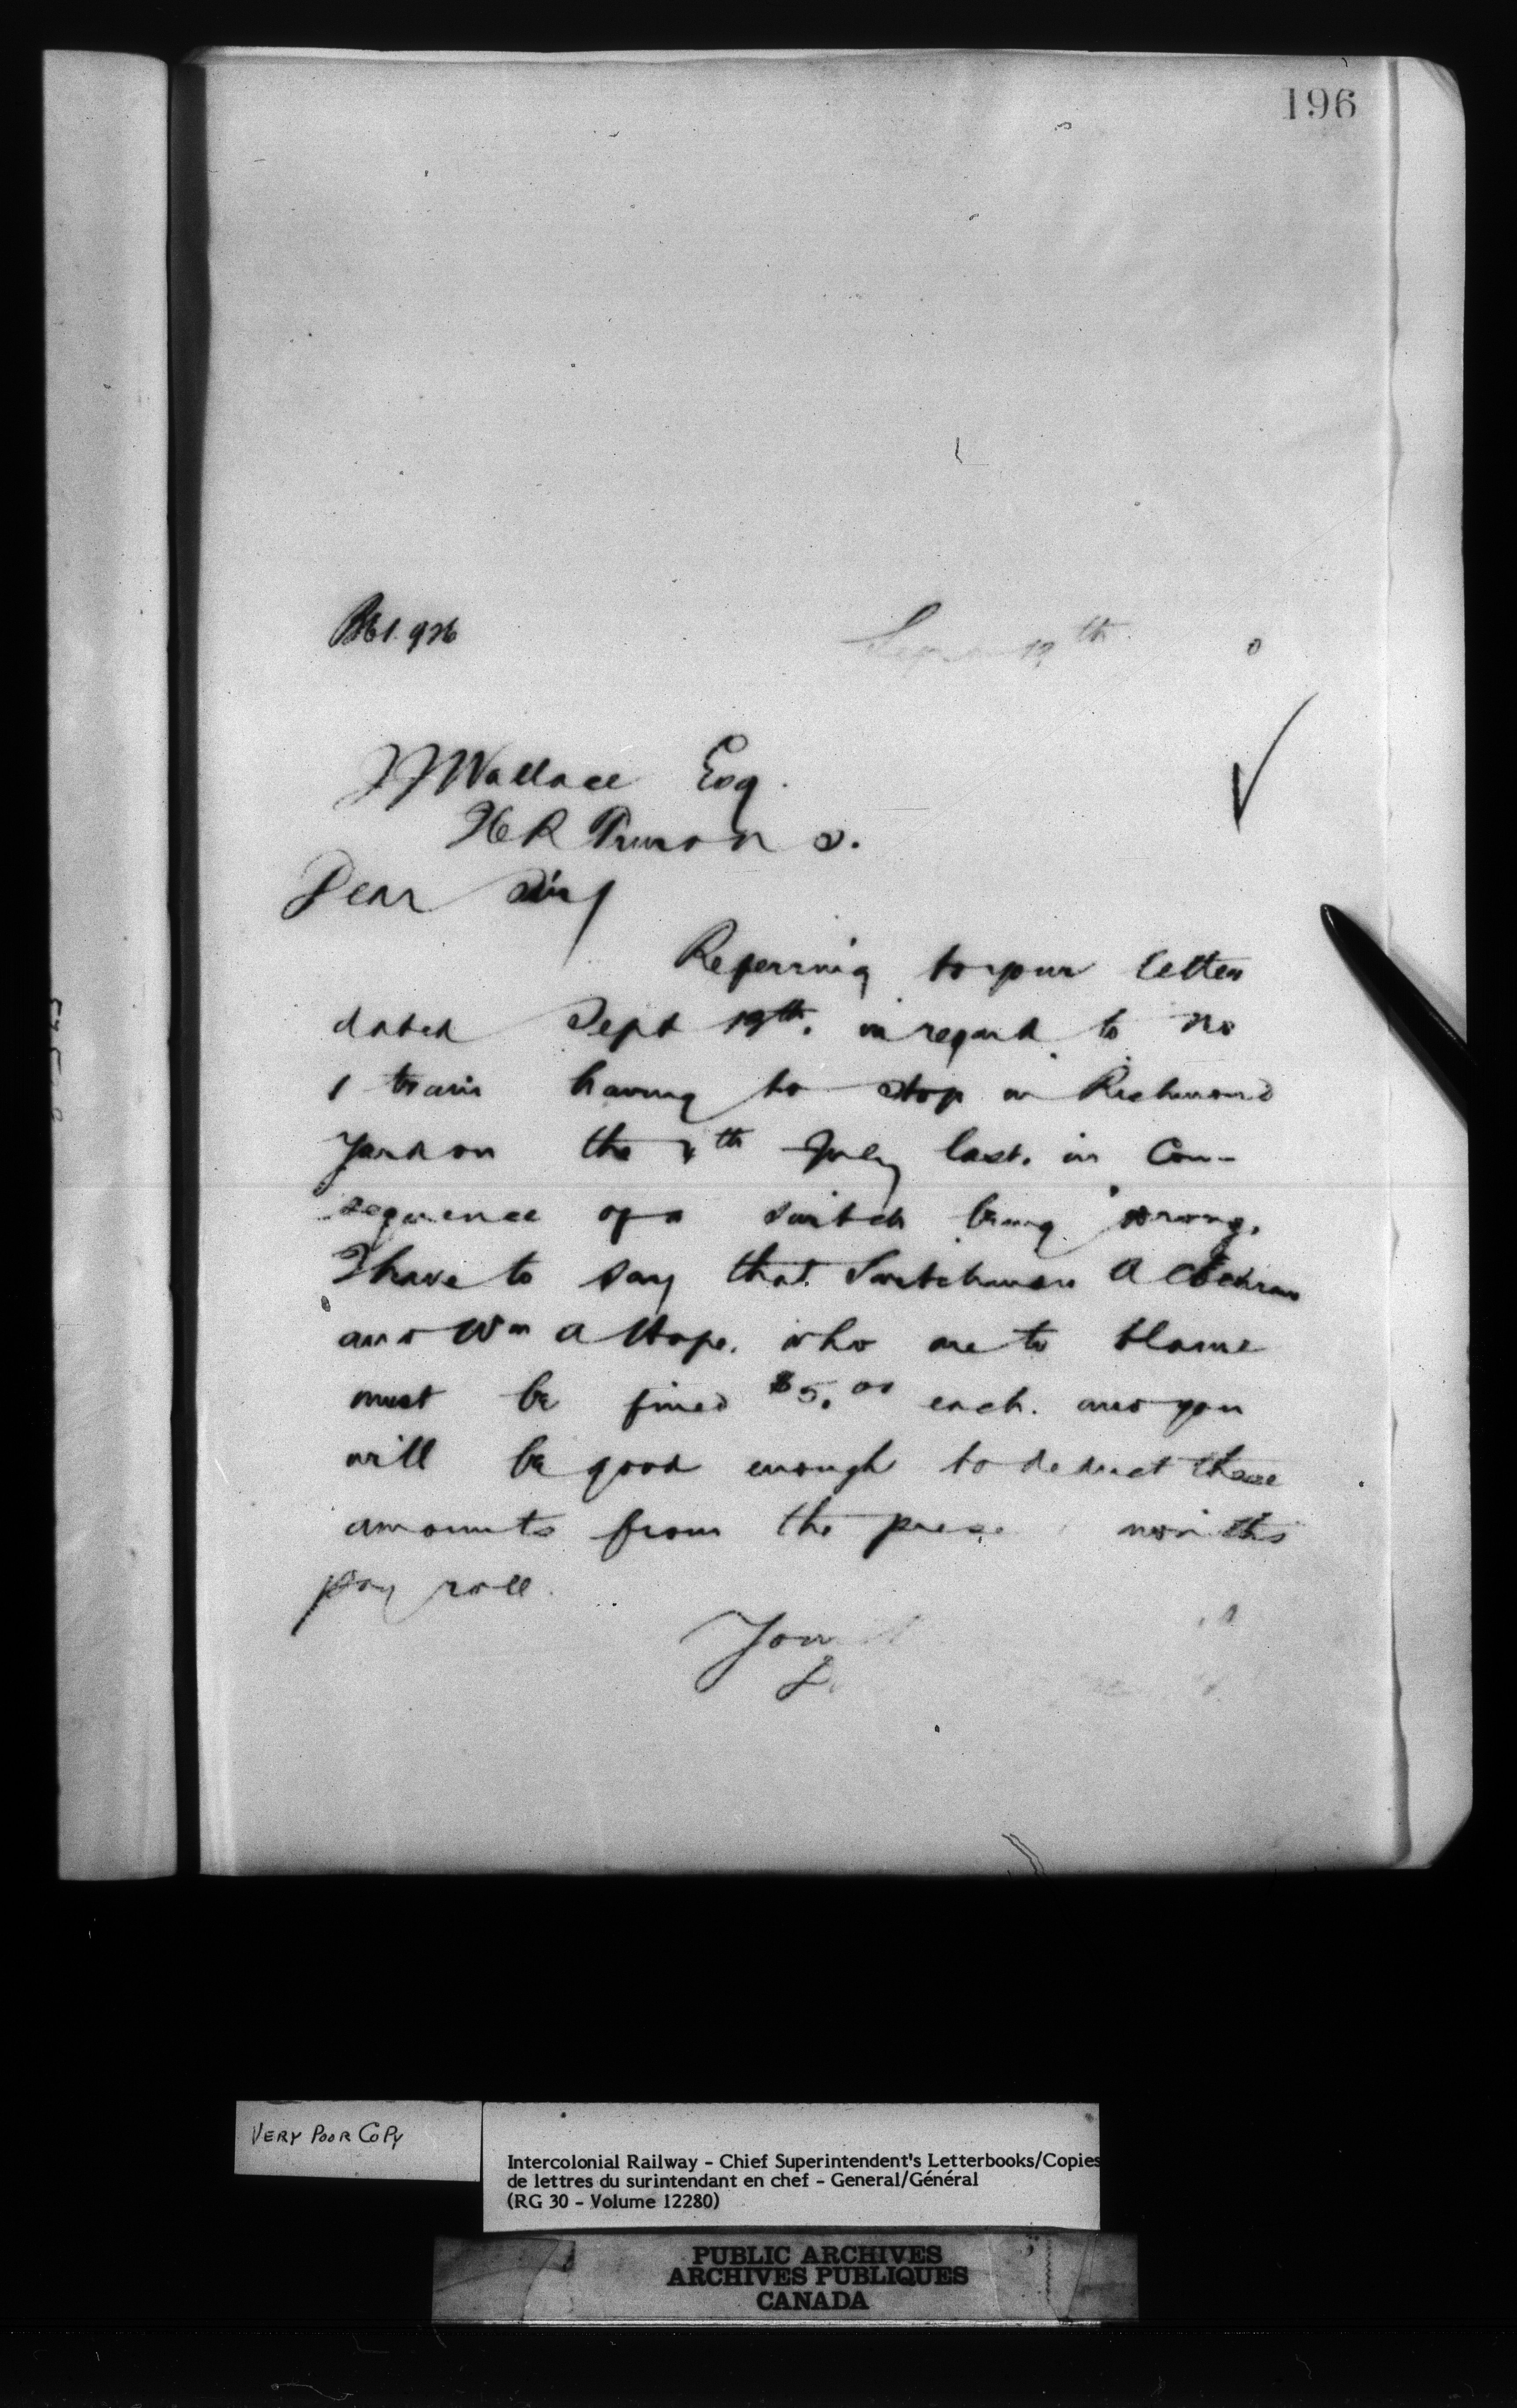 196
Sep 19th
J J Wallace Esq.
Dear Sir/
Referring to your letter
dated Sept 19th. in regard to No
1 train having to stop in Richmond
Yard on the 4th July last. in Con-
sequence of a switch being wrong.
I have to say that. Switchmen A Cochran
and Wm A Hope. who are to blame
must be fined $5.00 each. and you
will be good enough to deduct these
amounts from the prese months
pay roll.
You
VERY POOR COPY
Intercolonial Railway - Chief Superintendent's Letterbooks/Copies
de lettres du surintendant en chef - General/Général
(RG 30 - Volume 12280)
PUBLIC ARCHIVES
ARCHIVES PUBLIQUES
CANADA